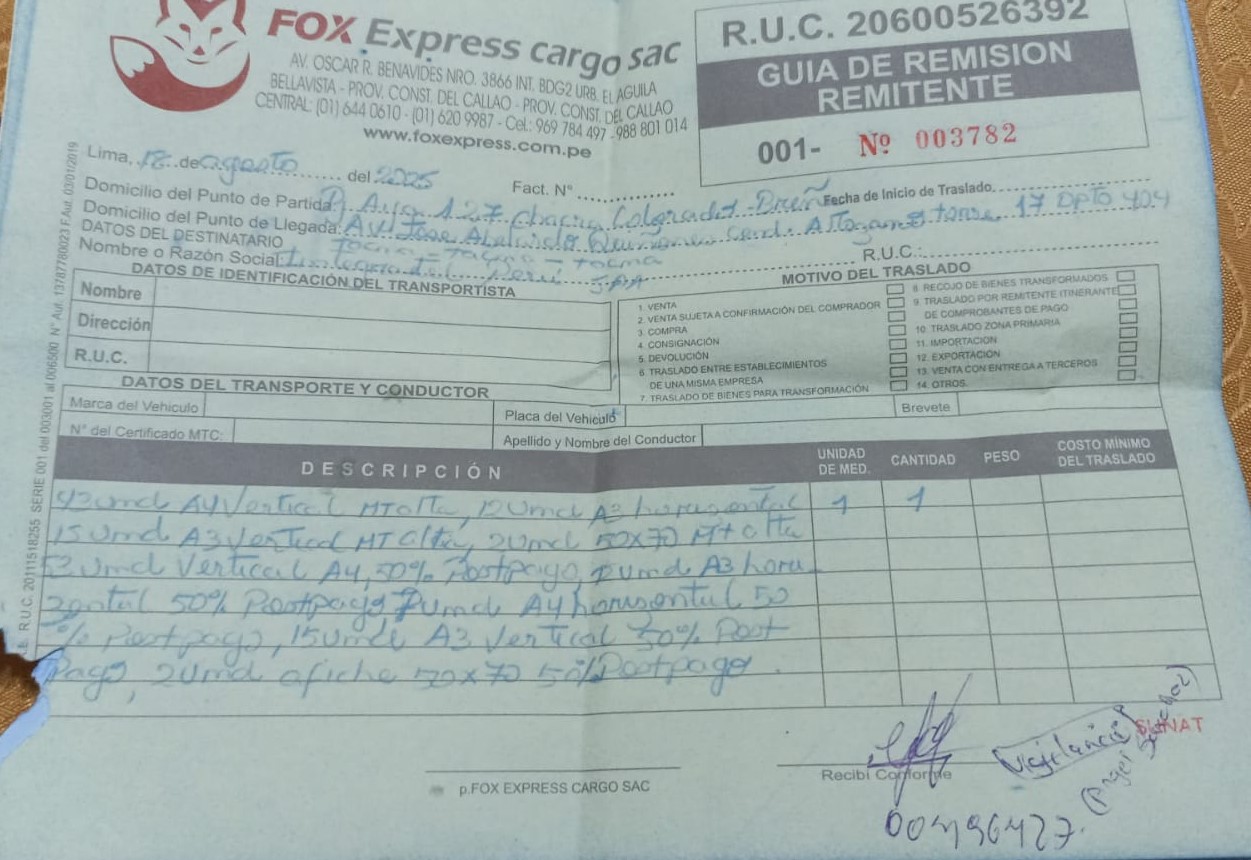 FOX Express cargo sac
AV. OSCAR R. BENAVIDES NRO. 3866 INT. BDG2 URB. EL AGUILA
BELLAVISTA - PROV. CONST. DEL CALLAO - PROV. CONST. DEL CALLAO
CENTRAL: (01) 644 0610 - (01) 620 9987 - Cel.: 969 784 497 - 988 801 014
www.foxexpress.com.pe
R.U.C. 20600526392
GUIA DE REMISION
REMITENTE
001- Nº 003782
Lima, 18 de agosto del 2025 Fact. N°
Fecha de Inicio de Traslado
Domicilio del Punto de Partida: 127 Chacra Colorada - Breñ
Domicilio del Punto de Llegada: AV. Jose Abelardo Quiñones Cond. 17 DPTO 404
DATOS DEL DESTINATARIO Tacna - Tacna - Tacna
Nombre o Razón Social: Perú SAA R.U.C.:
DATOS DE IDENTIFICACIÓN DEL TRANSPORTISTA
Nombre
Dirección
R.U.C.
MOTIVO DEL TRASLADO
1. VENTA
2. VENTA SUJETA A CONFIRMACIÓN DEL COMPRADOR
3. COMPRA
4. CONSIGNACIÓN
5. DEVOLUCIÓN
6. TRASLADO ENTRE ESTABLECIMIENTOS
DE UNA MISMA EMPRESA
7. TRASLADO DE BIENES PARA TRANSFORMACIÓN
8. RECOJO DE BIENES TRANSFORMADOS
9. TRASLADO POR REMITENTE ITINERANTE
DE COMPROBANTES DE PAGO
10. TRASLADO ZONA PRIMARIA
11. IMPORTACIÓN
12. EXPORTACIÓN
13. VENTA CON ENTREGA A TERCEROS
14. OTROS.
DATOS DEL TRANSPORTE Y CONDUCTOR
Marca del Vehiculo Placa del Vehiculo Brevete
N° del Certificado MTC: Apellido y Nombre del Conductor
DESCRIPCIÓN UNIDAD DE MED. CANTIDAD PESO COSTO MÍNIMO DEL TRASLADO
Umd A4 Vertical MT alta, 12 Umd A3 horizontal 1 1
15 Umd A3 Vertical MT alta, 2 Umd 50x70 MT alta
Umd Vertical A4, 50% Postpago, Umd A3 hori
zontal 50% Postpago Umd A4 horizontal 50
% Postpago, 15 Umd A3 Vertical 50% Post
Pago, 2 Umd afiche 50x70 50% Postpago
p.FOX EXPRESS CARGO SAC
Recibí Conforme
Vigilancia
SUNAT
00496427
R.U.C. 20111518255 SERIE 001 del 003001 al 006500 N° Aut. 137877780023 F.Aut. 03/01/2019